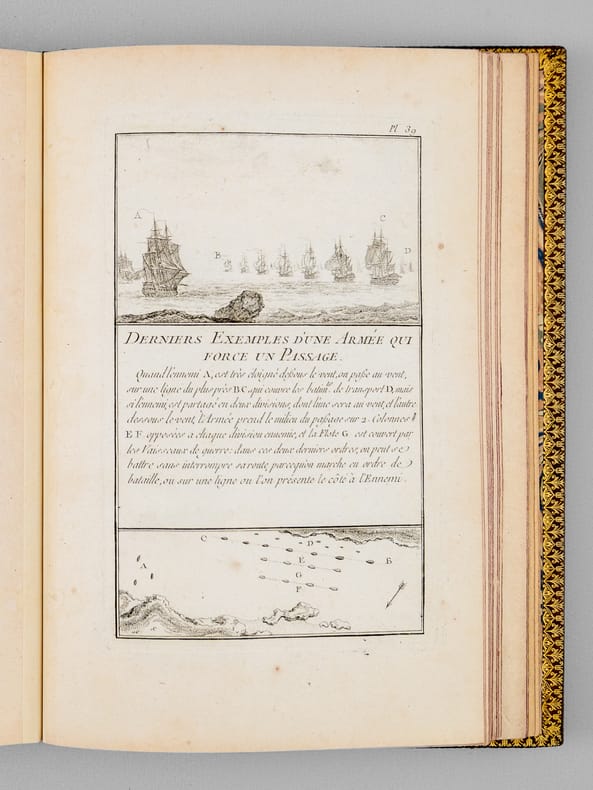 Pl 39
A
B
C
D
DERNIERS EXEMPLES D'UNE ARMÉE QUI
FORCE UN PASSAGE.
Quand l'ennemi A, est très eloigné dessous le vent, on passe au vent,
sur une ligne du plus près BC, qui couvre les batim.ts de transport D, mais
si l'ennemi, est partagé en deux divisions, dont l'une sera au vent, et l'autre
dessous le vent, l'Armée prend le milieu du passage sur 2. Colonnes
E F opposées a chaque division ennemie, et la Flote G est couvert par
les Vaisseaux de guerre: dans ces deux derniers ordres, on peut se
battre sans interrompre sa route, parcequ'on marche en ordre de
bataille, ou sur une ligne ou l'on présente le côté à l'Ennemi.
C
D
E
B
A
G
F